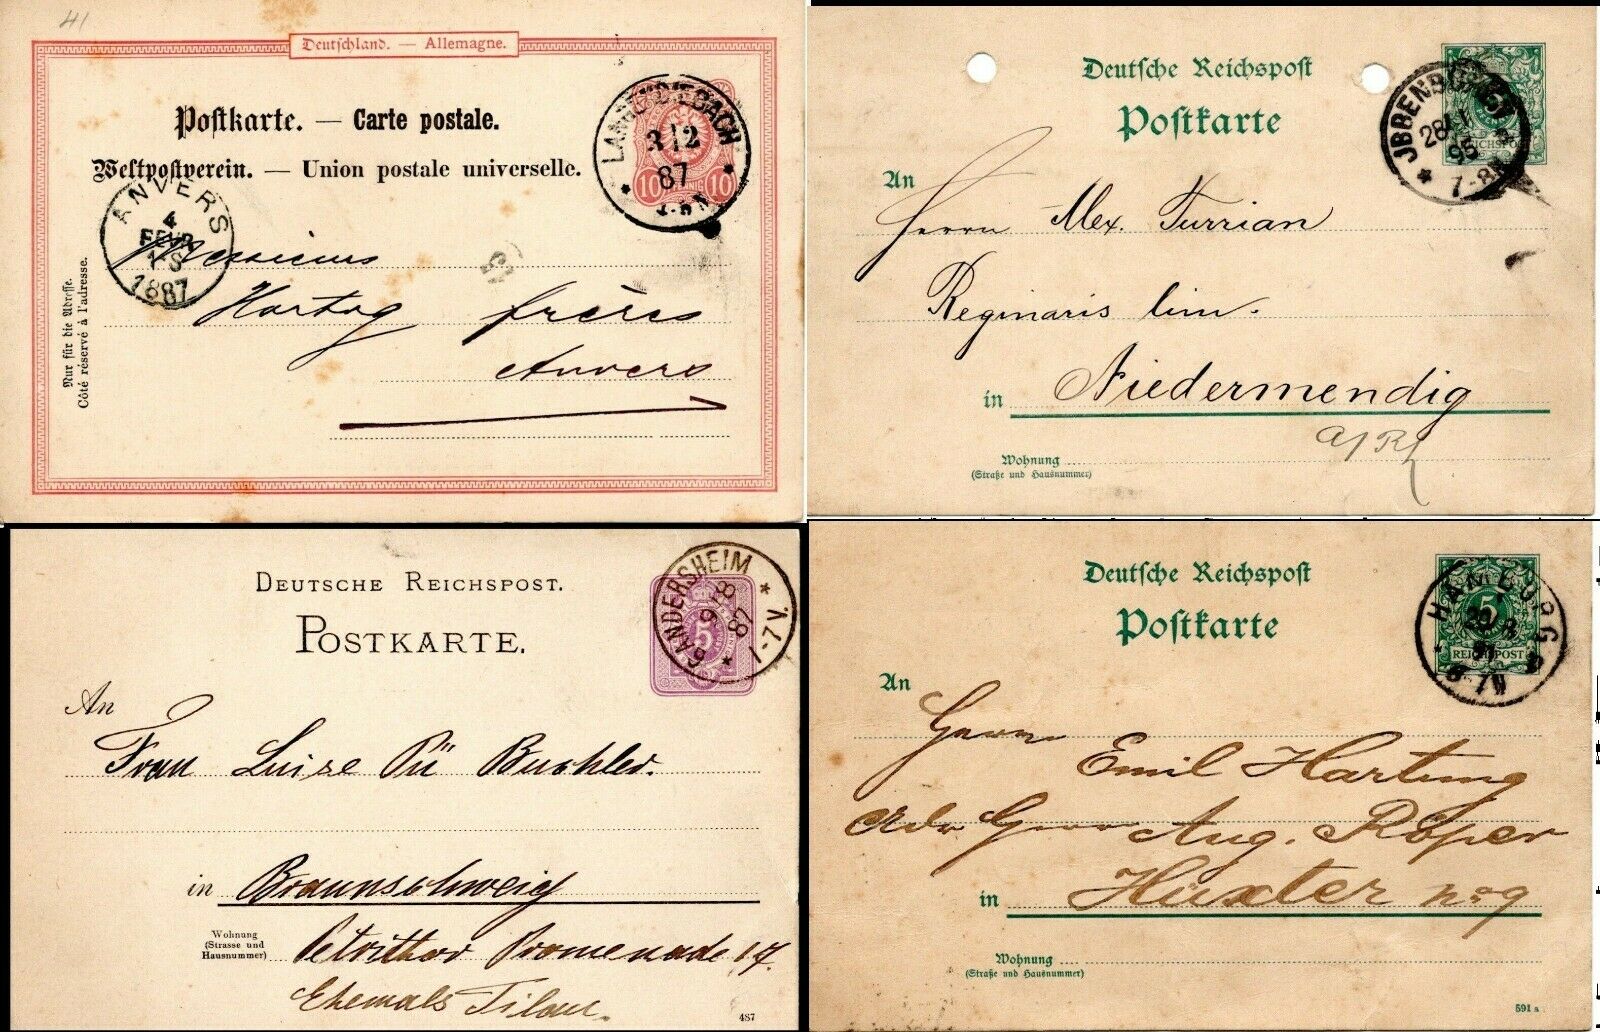 41
Deutschland. — Allemagne.
Postkarte. — Carte postale.
Weltpostverein. — Union postale universelle.
LANGENDIEBACH
3 12
87
10 PFENNIG 10
ANVERS
4
FEVR
1887
Messieurs
Hartog frères
Anvers
Nur für die Adresse.
Côté réservé à l'adresse.
Deutsche Reichspost
Postkarte
JBBENBÜREN
28
95
7-8N
An
Herrn Alex. Turrian
Reginaris lim.
in Niedermendig
a/Rh
Wohnung
(Straße und Hausnummer)
DEUTSCHE REICHSPOST.
POSTKARTE.
5
GANDERSHEIM
9 8
87
An
Frau Luise Buchler.
in Braunschweig
Wohnung
(Strasse und
Hausnummer)
Petrithor Promenade 17.
Ehemals
487
Deutsche Reichspost
Postkarte
5
REICHSPOST
HAMBURG
29/8
An
Herrn Emil Hartung
Adr Herrn Aug. Röper
in Hüxter no 9
Wohnung
(Straße und Hausnummer)
591 a